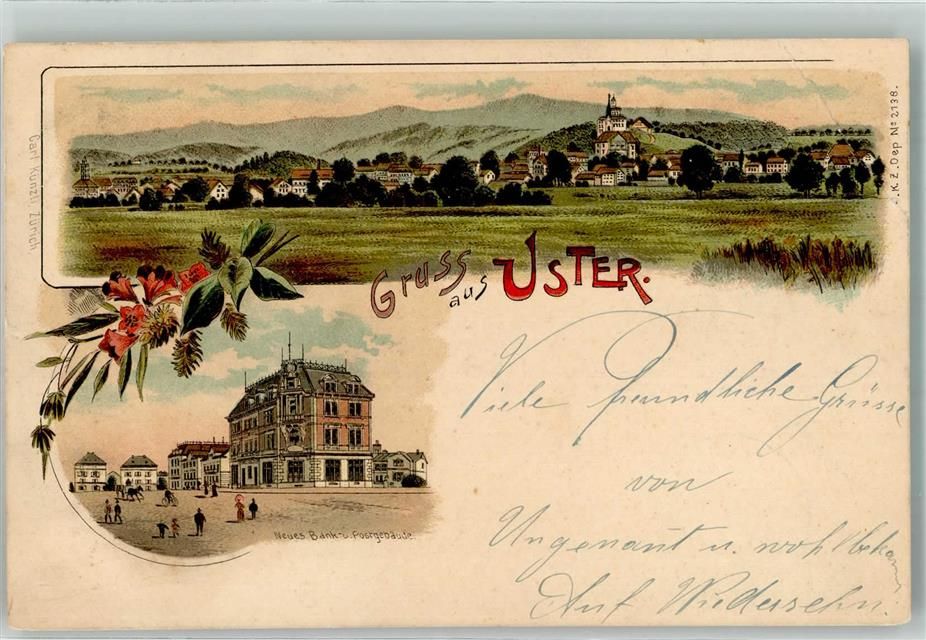 Carl Künzli, Zürich.
J.K.Z. Dep. No 2138.
Gruss aus USTER.
Neues Bank- u. Postgebäude.
Viele freundliche Grüsse
von
Ungenannt u. wohlbekannt
Auf Wiedersehn.